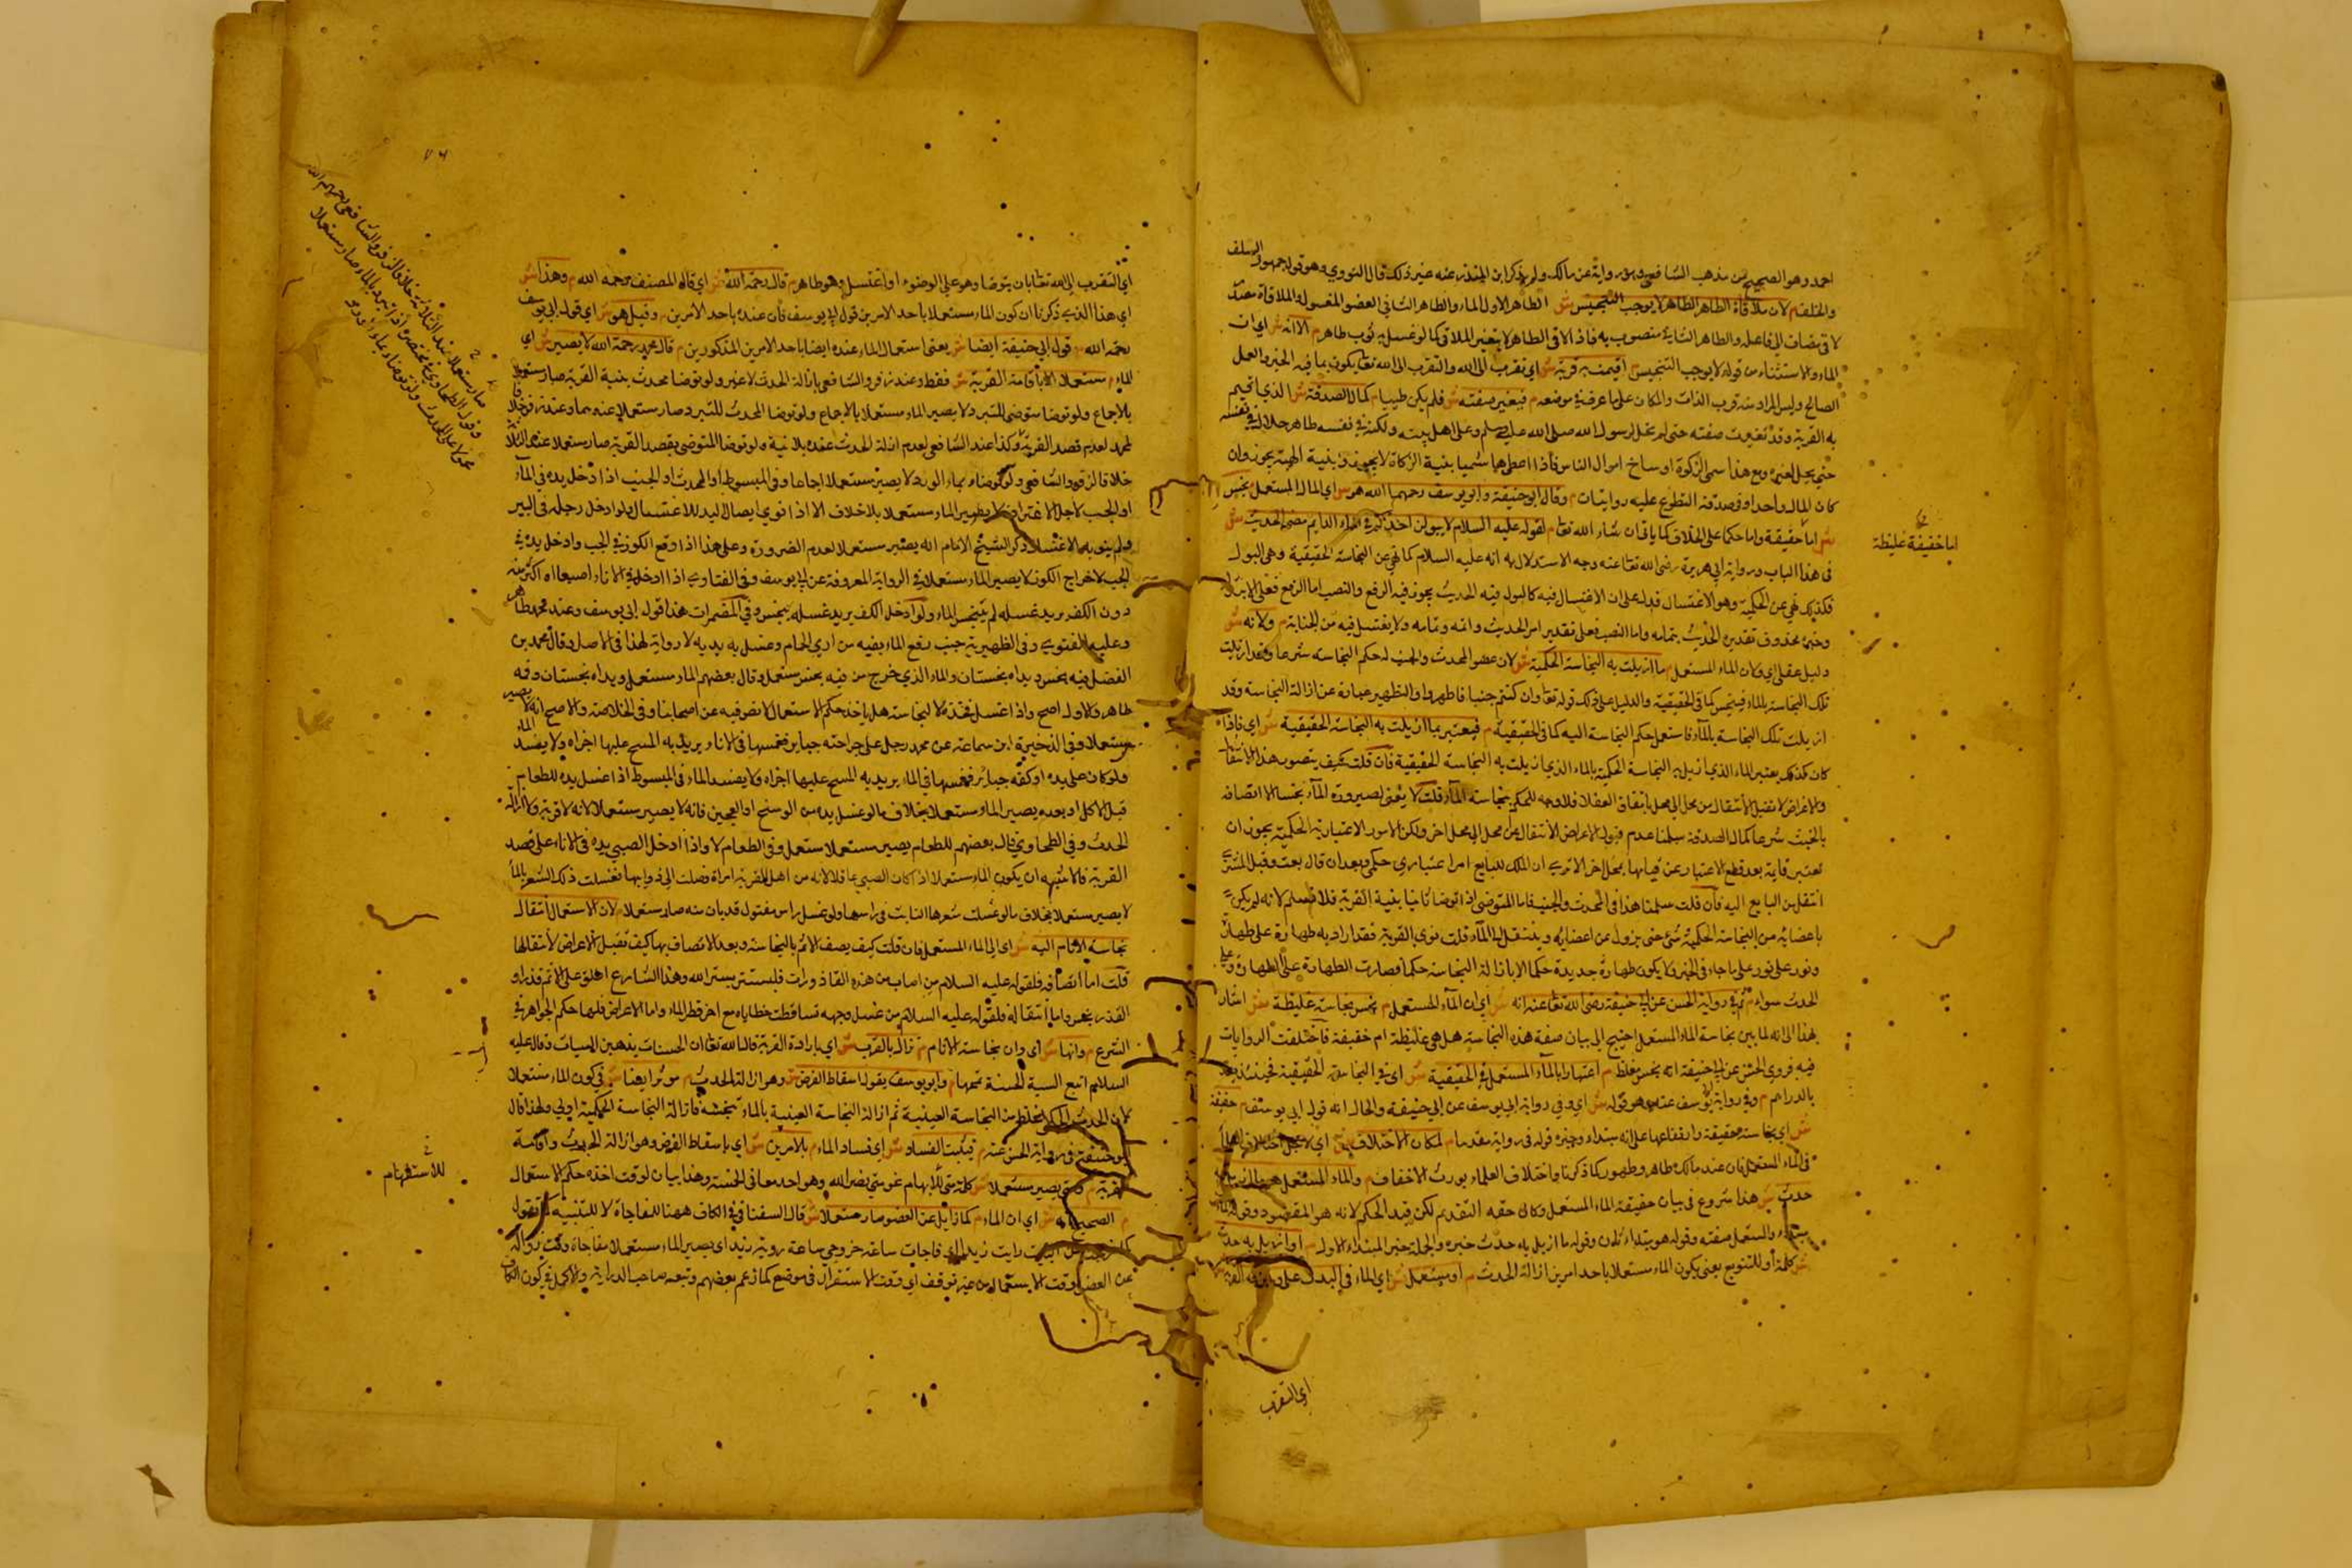 احمد وهو الصحيح من مذهب الشافعي وهو رواية عن مالك ولم يذكر ابن المنذر عنه غير ذلك قال النووي وهو قول جمهور السلف
م لان ملاقاة الطاهر الطاهر لا يوجب التنجيس ش الطاهر الاول الماء والطاهر الثاني العضو المغسول والملاقاة مصدر
لاقى مضاف الى فاعله والطاهر الثاني منصوب به فاذا لاقى الطاهر لا يتغير الملاقي كما لو غسل به ثوب طاهر م الا انه ش اي ان
الماء والاستثناء من قوله لا يوجب التنجيس م اقيمت به قربة ش اي تقرب الى الله والتقرب الى الله تعالى يكون بما فيه الخير والعمل
الصالح وليس المراد منه قرب الذات والمكان على ما عرف في موضعه م فتغيرت صفته ش فلم يكن طيبا م كمال الصدقة ش الذي اقيم
به القربة وقد تغيرت صفته حتى لم تحل لرسول الله صلى الله عليه وسلم وعلى اهل بيته ولكنه في نفسه طاهر حلال في نفسه
حتى يحل لغيره ومع هذا سمى الزكوة اوساخ اموال الناس فاذا اعطى هاشميا بنية الزكاة لا يجوز وبنية الهبة يجوز وان
كان المال واحدا وفي صدقة التطوع عليه روايتان م وقال ابو حنيفة وابو يوسف رحمهما الله هو ش اي الماء المستعمل م نجس
ش اما حقيقة واما حكما على الخلاف كما ياتي ان شاء الله تعالى م لقوله عليه السلام لا يبولن احدكم في الماء الدايم مضى الحديث ش
في هذا الباب من رواية ابي هريرة رضي الله تعالى عنه وجه الاستدلال به انه عليه السلام كما نهى عن النجاسة الحقيقية وهي البول
فكذلك نهى عن الحكمية وهو الاغتسال فدل على ان الاغتسال فيه كالبول فيه الحديث يجوز فيه الرفع والنصب اما الرفع فعلى الابتداء
وخبره محذوف تقديره الحديث بتمامه واما النصب فعلى تقدير اقرا الحديث واتمه وتمامه ولا يغتسل فيه من الجنابة م ولانه ش
دليل عقلي اي ولان الماء المستعمل م ما ازيلت به النجاسة الحكمية ش لان عضو المحدث والجنب له حكم النجاسة شرعا وقد ازيلت
تلك النجاسة بالماء فينجس كما في الحقيقية والدليل على ذلك قوله تعالى وان كنتم جنبا فاطهروا والتطهير عبارة عن ازالة النجاسة وقد
ازيلت تلك النجاسة بالماء فاستعمل حكم النجاسة اليه كما في الحقيقية م فيعتبر بما ازيلت به النجاسة الحقيقية ش اي فاذا
كان كذلك يعتبر الماء الذي ازيل به النجاسة الحكمية بالماء الذي ازيلت به النجاسة الحقيقية فان قلت كيف يتصور هذا الانتقال
والاعراض لا تقبل الانتقال من محل الى محل باتفاق العقلا فلا وجه للحكم بنجاسة الماء قلت لا يعنى لصيرورة الماء نجسا الا اتصافه
بالخبث شرعا كمال الصدقة سلمنا عدم قبول الاعراض الانتقال من محل الى محل اخر ولكن الامور الاعتبارية الحكمية يجوز ان
تعتبر قايمة بعد قطع الاعتبار عن قيامها بمحل اخر الا ترى ان الملك للبايع امر اعتباري حكمي وبعد ان قال بعت وقبل المشتري
انتقل من البايع اليه فان قلت سلمنا هذا في المحدث والجنب فاما المتوضي اذا توضا ثانيا بنية القربة فلا نسلم لانه لم يكن
باعضايه من النجاسة الحكمية شيء حتى يزول عن اعضايه وينتقل الى الماء قلت نوى القربة فقد اراد به طهارة على طهارة
ونور على نور على ما جاء في الخبر ولا يكون طهارة جديدة حكما الا بازالة النجاسة حكما فصارت الطهارة على الطهارة وعلى
الحدث سواء م ثم في رواية الحسن عن ابي حنيفة رضي الله تعالى عنه انه ش اي ان الماء المستعمل م نجس نجاسة غليظة ش اشار
بهذا الى انه لما بين نجاسة الماء المستعمل احتيج الى بيان صفة هذه النجاسة هل هي غليظة ام خفيفة فاختلفت الروايات
فيه فروى الحسن عن ابي حنيفة انه نجس مغلظ م اعتبارا بالماء المستعمل في الحقيقية ش اي في النجاسة الحقيقية فحينئذ يقدر
بالدراهم م وفي رواية ابي يوسف عنه وهو قوله ش اي وفي رواية ابي يوسف عن ابي حنيفة والحال انه قول ابي يوسف م خفيفة
ش اي نجاسته خفيفة وارتفاعها على انه مبتداء وخبره قوله في رواية مقدما م لمكان الاختلاف ش اي لاجل اختلاف العلماء
في الماء المستعمل فان عند مالك طاهر وطهور كما ذكرنا واختلاف العلماء يورث الاخفاف م والماء المستعمل هو ما ازيل به
حدث ش هذا شروع في بيان حقيقة الماء المستعمل وكان حقه التقديم لكن قدم الحكم لانه هو المقصود وقوله الماء
مبتداء والمستعمل صفته وقوله هو مبتداء ثان وقوله ما ازيل به حدث خبره والجملة خبر المبتداء الاول م او ازيل به حدث
ش كلمة أو للتنويع يعني يكون الماء مستعملا باحد امرين ازالة الحدث م او يستعمل ش اي الماء في البدن على وجه القربة
اما خفيفة غليظة
اي التقرب
اي التقرب الى الله تعالى بان يتوضا وهو على الوضوء او اغتسل وهو طاهر م قال رحمه الله ش اي قال المصنف رحمه الله م وهذا ش
اي هذا الذي ذكرنا ان كون الماء مستعملا باحد الامرين قول ابي يوسف فان عنده باحد الامرين م وقيل هو ش اي قول ابي يوسف
رحمه الله م قول ابي حنيفة ايضا ش يعني استعمال الماء عنده ايضا باحد الامرين المذكورين م قال محمد رحمه الله لا يصير ش اي
الماء م مستعملا الا باقامة القربة ش فقط وعند زفر والشافعي بازالة الحدث لا غير ولو توضا محدث بنية القربة صار مستعملا
بالاجماع ولو توضا متوضي للتبرد لا يصير الماء مستعملا بالاجماع ولو توضا المحدث للتبرد صار مستعملا عندهما وعند زفر خلافا
لمحمد لعدم قصد القربة وكذا عند الشافعي لعدم ازالة الحدث عنده بلا نية ولو توضا المتوضي بقصد القربة صار مستعملا عند الثلاثة
خلافا لزفر والشافعي ولو توضاء بماء الورد لا يصير مستعملا اجماعا وفي المبسوط او المحدث او الجنب اذا ادخل يده في الماء
او الجب لاجل الاغتراف لا يصير الماء مستعملا بلا خلاف الا اذا نوى ايصال اليد للاغتسال ولو ادخل رجله في البير
ولم ينو به الاغتسال ذكر الشيخ الامام انه يصير مستعملا لعدم الضرورة وعلى هذا اذا وقع الكوز في الجب وادخل يده في
الجب لاخراج الكوز لا يصير الماء مستعملا في الرواية المعروفة عن ابي يوسف وفي الفتاوي اذا ادخل في الاناء اصبعا او اكثر منه
دون الكف يريد غسله لم يتنجس الماء ولو ادخل الكف يريد غسله يتنجس وفي المضمرات هذا قول ابي يوسف وعند محمد طاهر
وعليه الفتوى وفي الظهيرية جنب رفع الماء بفيه من ادي الحمام وغسل به يديه لا رواية لهذا في الاصل وقال محمد بن
الفضل فيه نجس ويداه نجستان والماء الذي خرج من فيه نجس مستعمل وقال بعضهم الماء مستعمل ويداه نجستان وفمه
طاهر والاول اصح واذا اغتسل هل ياخذ حكم الاستعمال لا نص فيه عن اصحابنا وفي الخلاصة والاصح انه لا يصير
مستعملا وفي الذخيرة ابن سماعة عن محمد رجل على جراحته جباير فغمسها في الاناء يريد به المسح عليها اجزاه ولا يفسد الماء
ولو كان على يده او كفه جبائر فغمسها في الماء يريد به المسح عليها اجزاه ولا يفسد الماء في المبسوط اذا غسل يده للطعام
قبل الاكل او بعده يصير الماء مستعملا بخلاف ما لو غسل يده من الوسخ او العجين فانه لا يصير مستعملا لانه لا قربة ولا ازالة
الحدث وفي الطحاوي قال بعضهم للطعام يصير مستعملا مستعمل وفي الطعام لا واذا أدخل الصبي يده في الاناء على قصد
القربة فالاشبه ان يكون الماء مستعملا اذا كان الصبي عاقلا لانه من اهل القربة امراة وصلت الى ذوابها فغسلت ذلك الشعر بالماء
لا يصير مستعملا بخلاف ما لو غسلت شعرها النابت في راسها ولو غسل راس مقتول قد بان منه صار مستعملا م لان الاستعمال انتقال
نجاسة الاثام اليه ش اي الى الماء المستعمل فان قلت كيف يصف الاثم بالنجاسة وبعد الاتصاف بها كيف تقبل الاعراض لانتقالها
قلت اما اتصافه فلقوله عليه السلام من اصاب من هذه القاذورات فليستتر بستر الله وهذا الشارع اطلق على الاثم قذرا و
القذر نجس واما انتقاله فلقوله عليه السلام من غسل وجهه تساقطت خطاياه مع اخر قطر الماء واما الاعراض فليها حكم الجواهر في
الشرع م وانها ش اي وان نجاسة الاثام م تزال بالقرب ش اي بارادة القربة قال الله تعالى ان الحسنات يذهبن السيات وقال عليه
السلام اتبع السيئة الحسنة تمحها م وابو يوسف يقول اسقاط الفرض ش وهو ازالة الحدث م موثر ايضا ش في كون الماء مستعملا
لان الحدث الحكمي اغلظ من النجاسة العينية ثم ازالة النجاسة العينية بالماء تنجسه فازالة النجاسة الحكمية اولى ولهذا قال
ابو حنيفة في رواية الحسن عنه م فيثبت الفساد ش اي فساد الماء م بالامرين ش اي باسقاط الفرض وهو ازالة الحدث واقامة
القربة م ومتى يصير مستعملا ش كلمة متى للابهام نحو متى نصر الله وهو احد معانى الخمسة وهذا بيان لوقت اخذه حكم الاستعمال
م الصحيح انه ش اي ان الماء م كما زايل عن العضو صار مستعملا ش قال السغناقي في الكاف ههنا للمفاجاة لا للتشبيه كما تقول
كما خرجت من البيت رايت زيدا اي فاجات ساعة خروجي ساعة روية زيد اي يصير الماء مستعملا مفاجاة وقت زواله
عن العضو وقت الاستعمال من غير توقف اي وقت الاستقرار في موضع كما زعم بعضهم وتبعه صاحب الدراية والاكمل في كون الكاف
للاستفهام